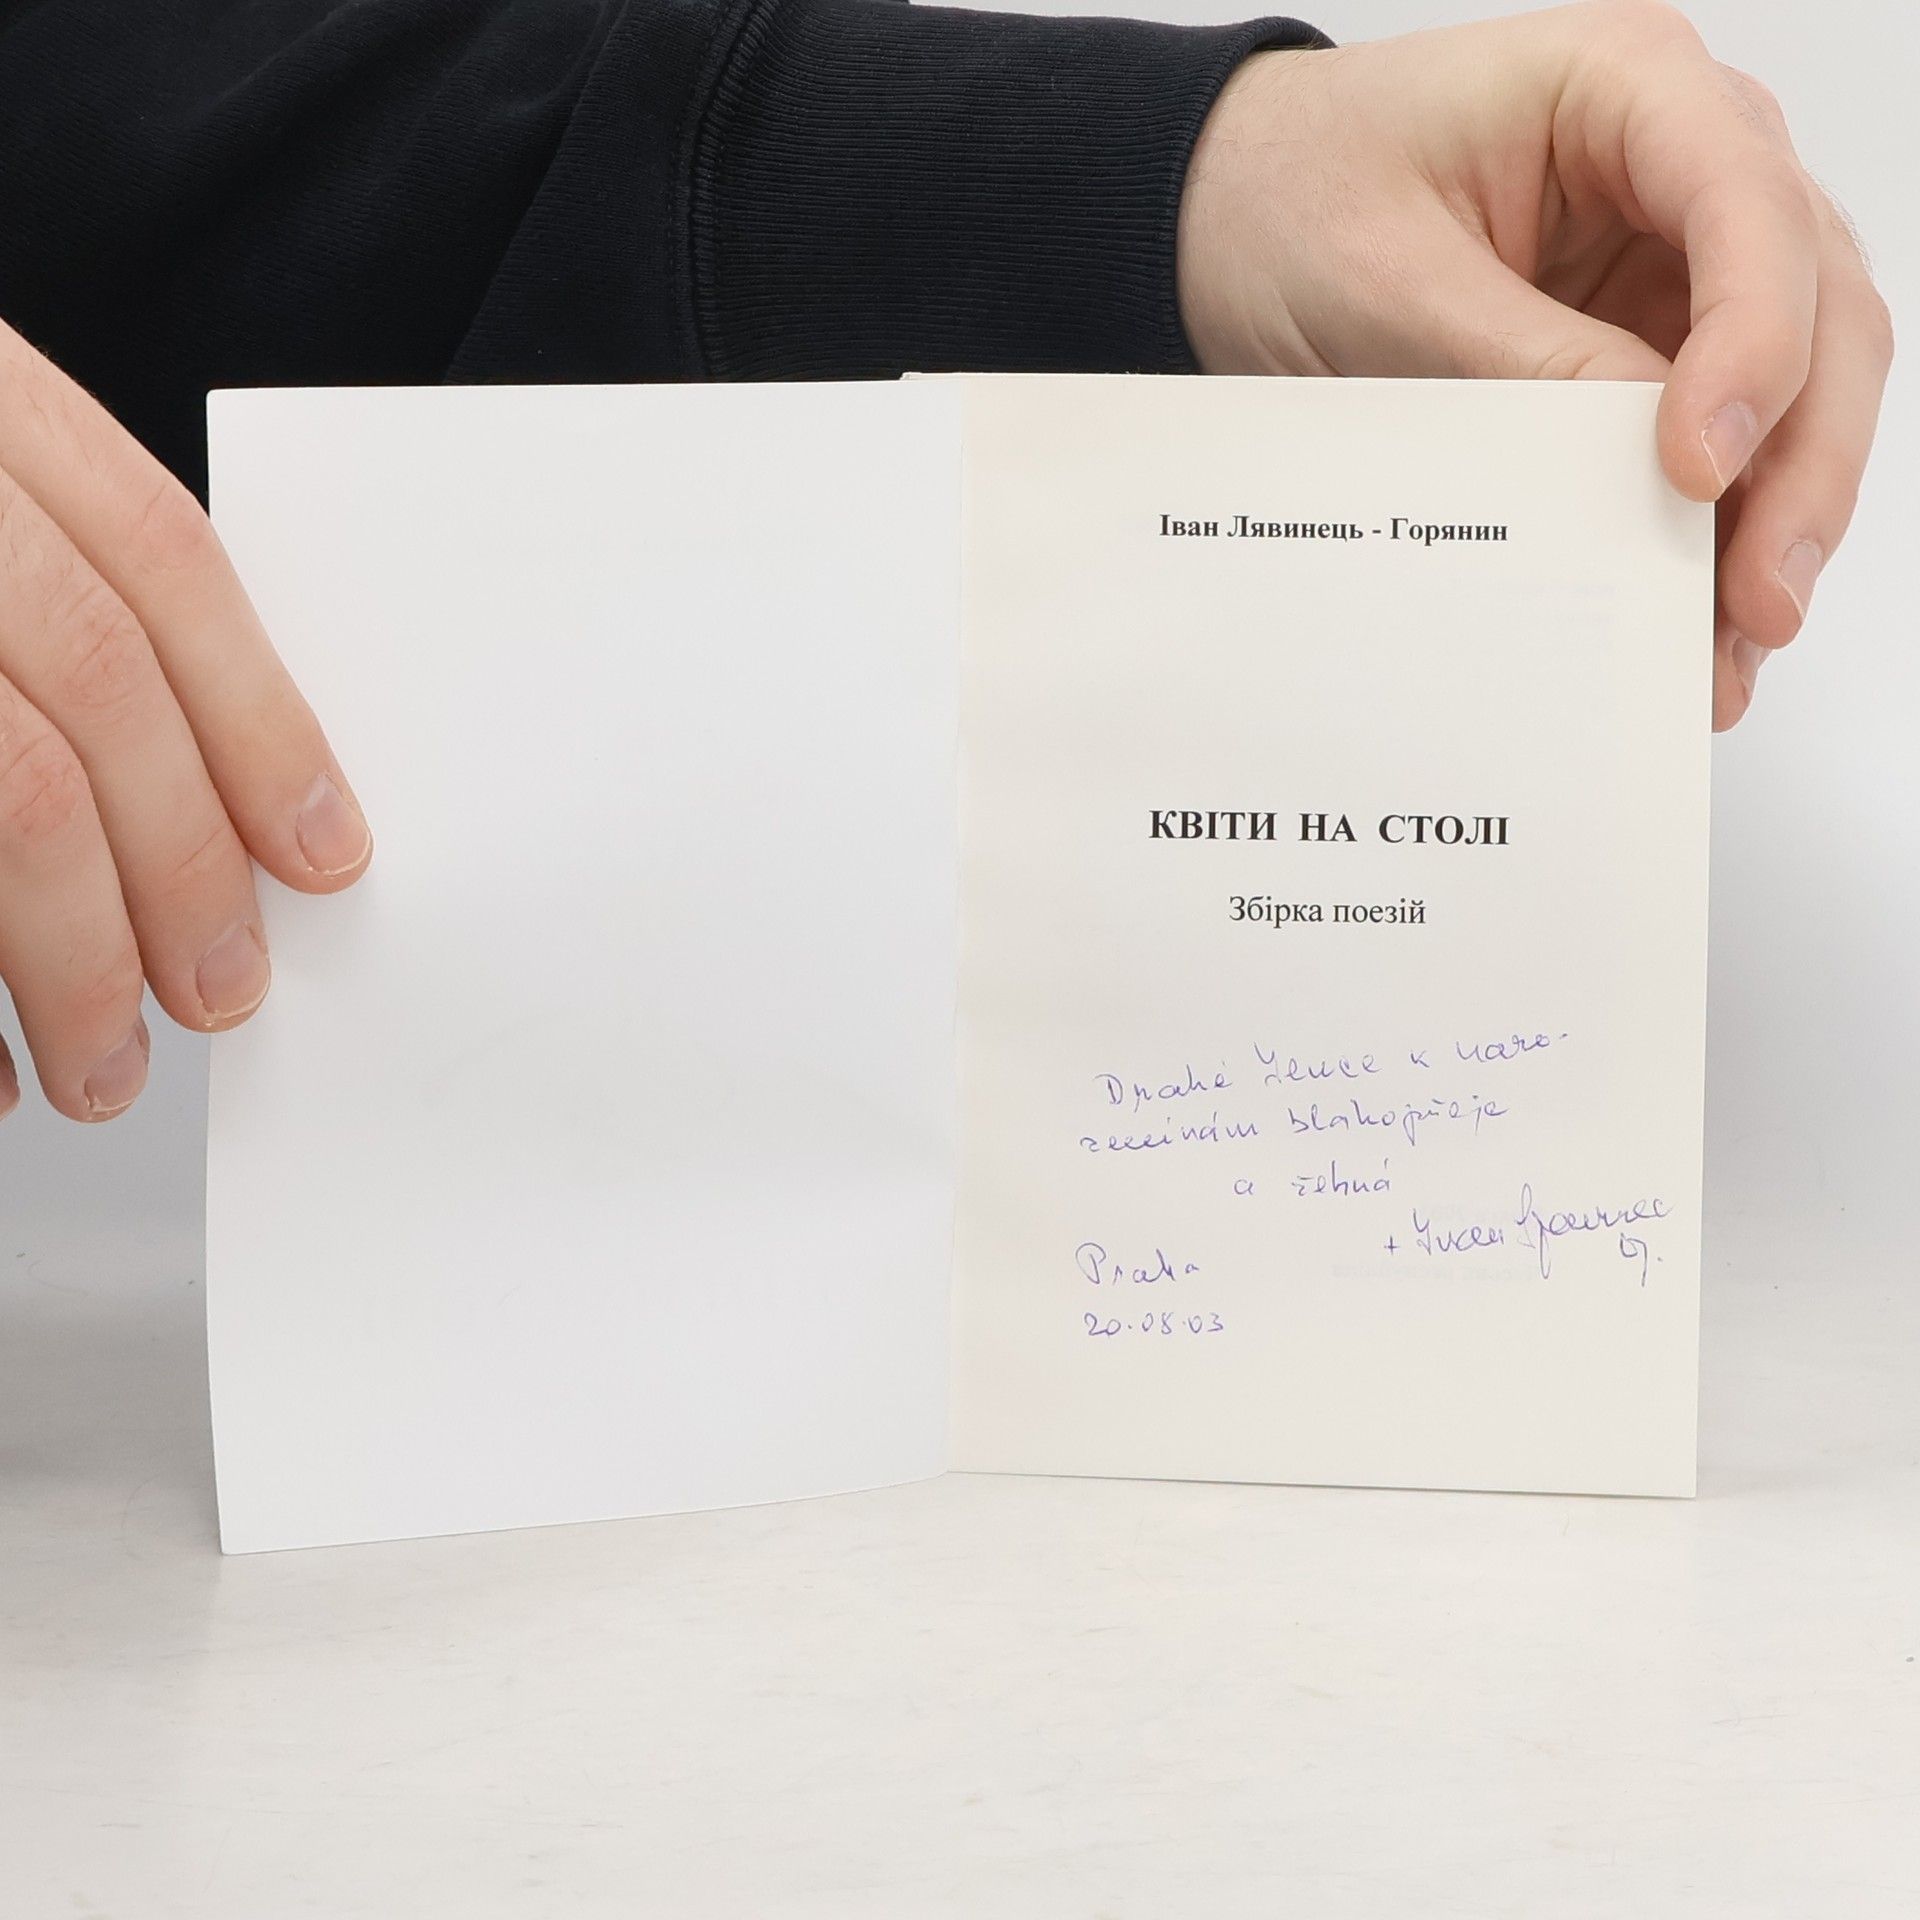 Іван Лявинець - Горянин
КВІТИ НА СТОЛІ
Збірка поезій
Drahé Lence k naro-
zeninám blahopřeje
a žehná
+ Ivan Ljavinec
Praha
20.08.03